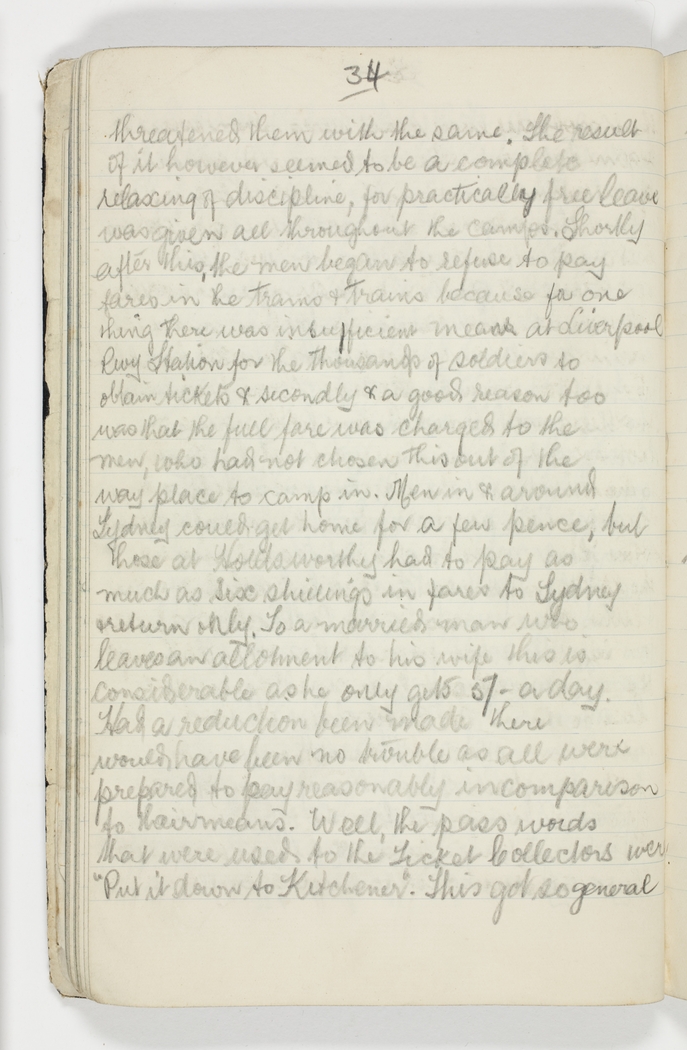 34
threatened them with the same. The result
of it however seemed to be a complete
relaxing of discipline, for practically free leave
was given all throughout the camps. Shortly
after this, the men began to refuse to pay
fares in the trams & trains because for one
thing there was insufficient means at Liverpool
Rwy Station for the thousands of soldiers to
obtain tickets & secondly & a good reason too
was that the full fare was charged to the
men, who had not chosen this out of the
way place to camp in. Men in & around
Sydney could get home for a few pence, but
those at Holdsworthy had to pay as
much as six shillings in fares to Sydney
& return only. To a married man who
leaves an allotment to his wife this is
considerable as he only gets 5/- a day.
Had a reduction been made there
would have been no trouble as all were
prepared to pay reasonably in comparison
to their means. Well, the pass words
that were used to the Ticket Collectors wer
"Put it down to Kitchener". This got so general